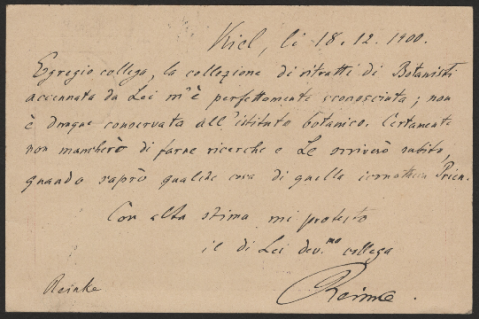 Kiel, li 18.12.1900.
Egregio collega, la collezione di ritratti di Botanisti
accennata da Lei m'è perfettamente sconosciuta; non
è dunque conservata all'istituto botanico. Certamente
non mancherò di farne ricerche e Le scriverò subito,
quando saprò qualche cosa di quella
Con alta stima mi protesto
il di Lei dev.mo collega
Reinke.
Reinke